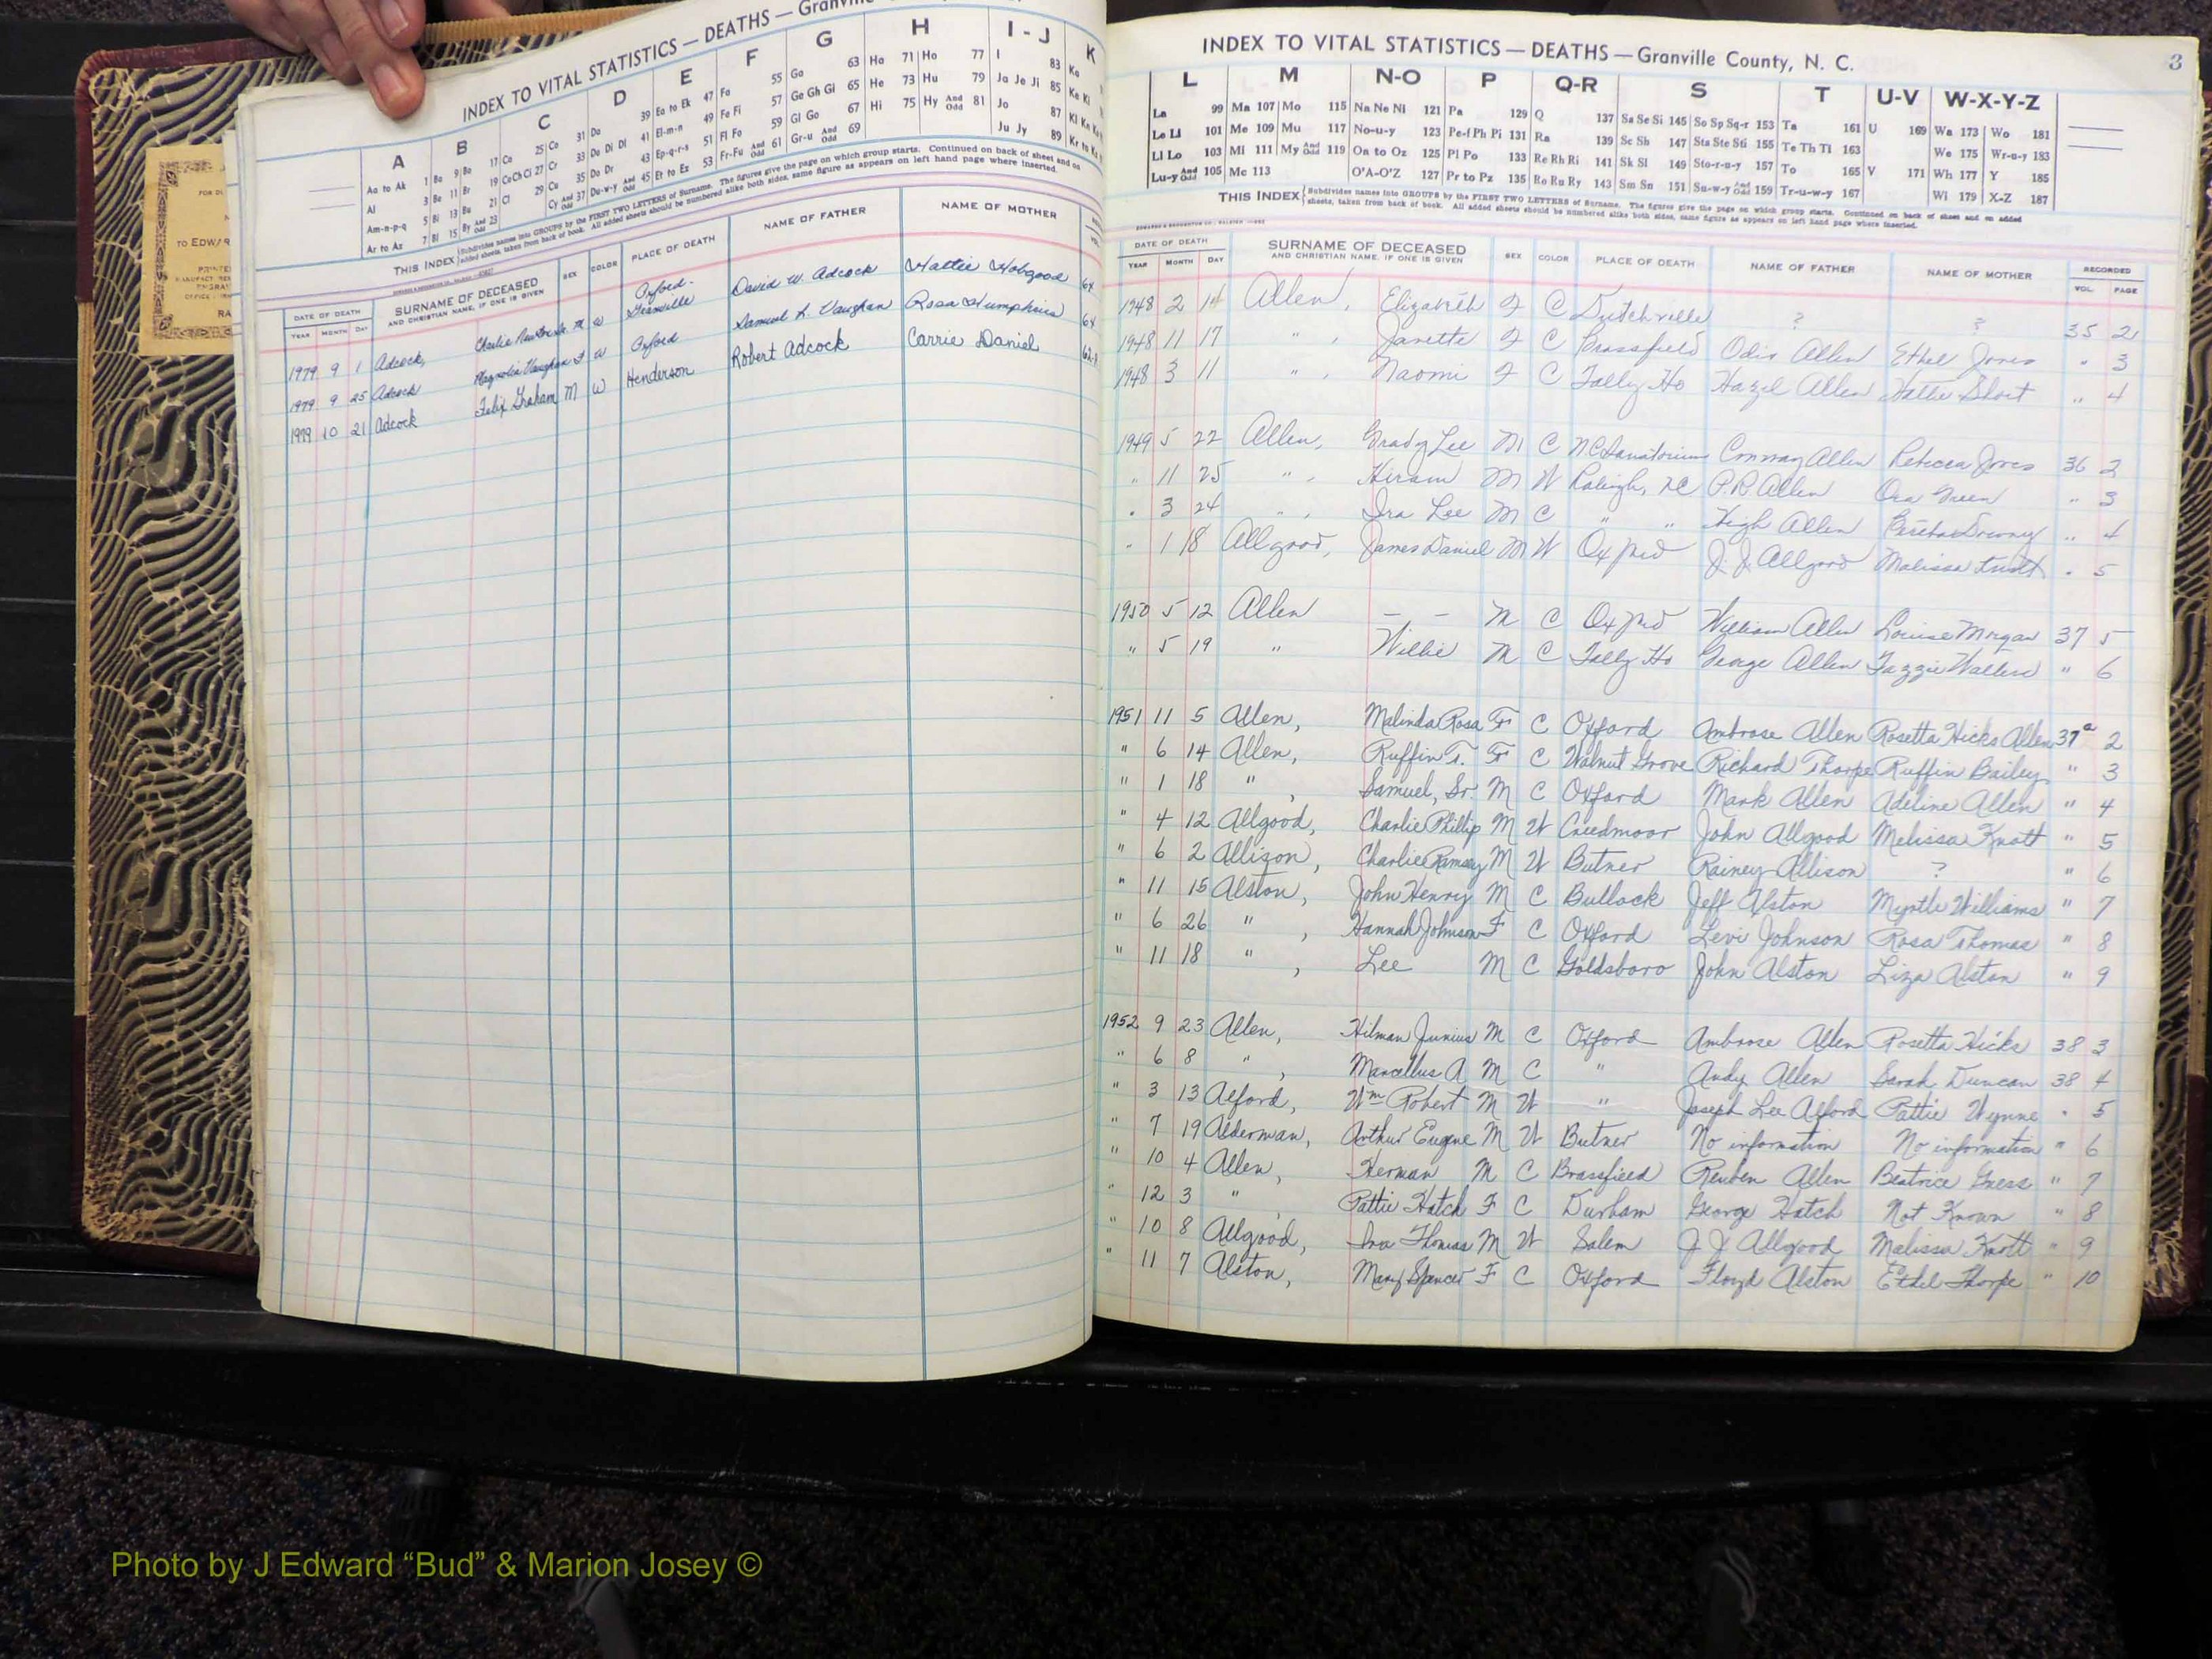 INDEX TO VITAL STATISTICS — DEATHS — Granville
A B C D E F G H I - J K
Aa to Ak 1 Ba 9 Ba 17 Ca 25 Co 31 Da 39 Ea to Ek 47 Fa 55 Ga 63 Ha 71 Ho 77 I 83 Ka
Al 3 Be 11 Br 19 Ce Ch Ci 27 Cr 33 De Di Dl 41 El-m-n 49 Fe Fi 57 Ge Gh Gi 65 He 73 Hu 79 Ja Je Ji 85 Ke Ki
Am-n-p-q 5 Bi 13 Bu 21 Cl 29 Cu 35 Do Dr 43 Ep-q-r-s 51 Fl Fo 59 Gl Go 67 Hi 75 Hy And Odd 81 Jo 87
Ar to Az 7 Bl 15 By And Odd 23 Cy And Odd 37 Du-w-y And Odd 45 Et to Ez 53 Fr-Fu And Odd 61 Gr-u And Odd 69 Ju Jy 89
THIS INDEX Subdivides names into GROUPS by the FIRST TWO LETTERS of Surname. The figures give the page on which group starts. Continued on back of sheet and on
added sheets, taken from back of book. All added sheets should be numbered alike both sides, same figure as appears on left hand page where inserted.
DATE OF DEATH SURNAME OF DECEASED SEX COLOR PLACE OF DEATH NAME OF FATHER NAME OF MOTHER
YEAR MONTH DAY AND CHRISTIAN NAME, IF ONE IS GIVEN
1979 9 1 Adcock, Charlie M W Oxford - Granville David W. Adcock Hattie Hobgood 64
1979 9 25 Adcock Magnolia Vaughan F W Oxford Samuel L. Vaughan Rosa Humphries 64
1979 10 21 Adcock Felix Graham M W Henderson Robert Adcock Carrie Daniel
INDEX TO VITAL STATISTICS — DEATHS — Granville County, N. C. 3
L M N-O P Q-R S T U-V W-X-Y-Z
La 99 Ma 107 Mo 115 Na Ne Ni 121 Pa 129 Q 137 Sa Se Si 145 So Sp Sq-r 153 Ta 161 U 169 Wa 173 Wo 181
Le Li 101 Me 109 Mu 117 No-u-y 123 Pe-f Ph Pi 131 Ra 139 Sc Sh 147 Sta Ste Sti 155 Te Th Ti 163 We 175 Wr-u-y 183
Ll Lo 103 Mi 111 My And Odd 119 On to Oz 125 Pl Po 133 Re Rh Ri 141 Sk Sl 149 Sto-r-u-y 157 To 165 V 171 Wh 177 Y 185
Lu-y And Odd 105 Mc 113 O'A-O'Z 127 Pr to Pz 135 Ro Ru Ry 143 Sm Sn 151 Su-w-y And Odd 159 Tr-u-w-y 167 Wi 179 X-Z 187
THIS INDEX Subdivides names into GROUPS by the FIRST TWO LETTERS of Surname. The figures give the page on which group starts. Continued on back of sheet and on added
sheets, taken from back of book. All added sheets should be numbered alike both sides, same figure as appears on left hand page where inserted.
DATE OF DEATH SURNAME OF DECEASED SEX COLOR PLACE OF DEATH NAME OF FATHER NAME OF MOTHER RECORDED
YEAR MONTH DAY AND CHRISTIAN NAME, IF ONE IS GIVEN VOL. PAGE
1948 2 14 Allen, Elizabeth F C Dutchville ? ? 35 2
1948 11 17 " , Janette F C Brassfield Odis Allen Ethel Jones " 3
1948 3 11 " , Naomi F C Tally Ho Hazel Allen Hattie Short " 4
1949 5 22 Allen, Grady Lee M C NC Sanatorium Conway Allen Rebecca Jones 36 2
" 11 25 " , Hiram M W Raleigh, NC P.R. Allen Ora Green " 3
" 3 24 " , Ira Lee M C " " High Allen Downey " 4
" 1 18 Allgood, James Daniel M W Oxford J. J. Allgood Malissa Knott " 5
1950 5 12 Allen — — M C Oxford William Allen Louise Morgan 37 5
" 5 19 " Willie M C Tally Ho George Allen " 6
1951 11 5 Allen, Malinda Rosa F C Oxford Ambrose Allen Rosetta Hicks Allen 37a 2
" 6 14 Allen, Ruffin T. F C Walnut Grove Richard Thorpe Ruffin Bailey " 3
" 1 18 " , Samuel, Sr. M C Oxford Mark Allen Adeline Allen " 4
" 4 12 Allgood, Charlie Phillip M W Creedmoor John Allgood Melissa Knott " 5
" 6 2 Allison, Charlie Ramsey M W Butner Rainey Allison ? " 6
" 11 15 Alston, John Henry M C Bullock Jeff Alston Myrtle Williams " 7
" 6 26 " , Hannah Johnson F C Oxford Levi Johnson Rosa Thomas " 8
" 11 18 " , Lee M C Goldsboro John Alston Liza Alston " 9
1952 9 23 Allen, Hilman Junius M C Oxford Ambrose Allen Rosetta Hicks 38 3
" 6 8 " , Marcellus A M C " Andy Allen Sarah Duncan 38 4
" 3 13 Alford, Wm Robert M W " Joseph Lee Alford Pattie Wynne " 5
" 7 19 Alderman, Arthur Eugene M W Butner No information No information " 6
" 10 4 Allen, Herman M C Brassfield Reuben Allen Beatrice " 7
" 12 3 " , Pattie Hatch F C Durham George Hatch Not Known " 8
" 10 8 Allgood, Ira Thomas M W Salem J J Allgood Malissa Knott " 9
" 11 7 Alston, Mary Spencer F C Oxford Floyd Alston Ethel Thorpe " 10
Photo by J Edward “Bud” & Marion Josey ©